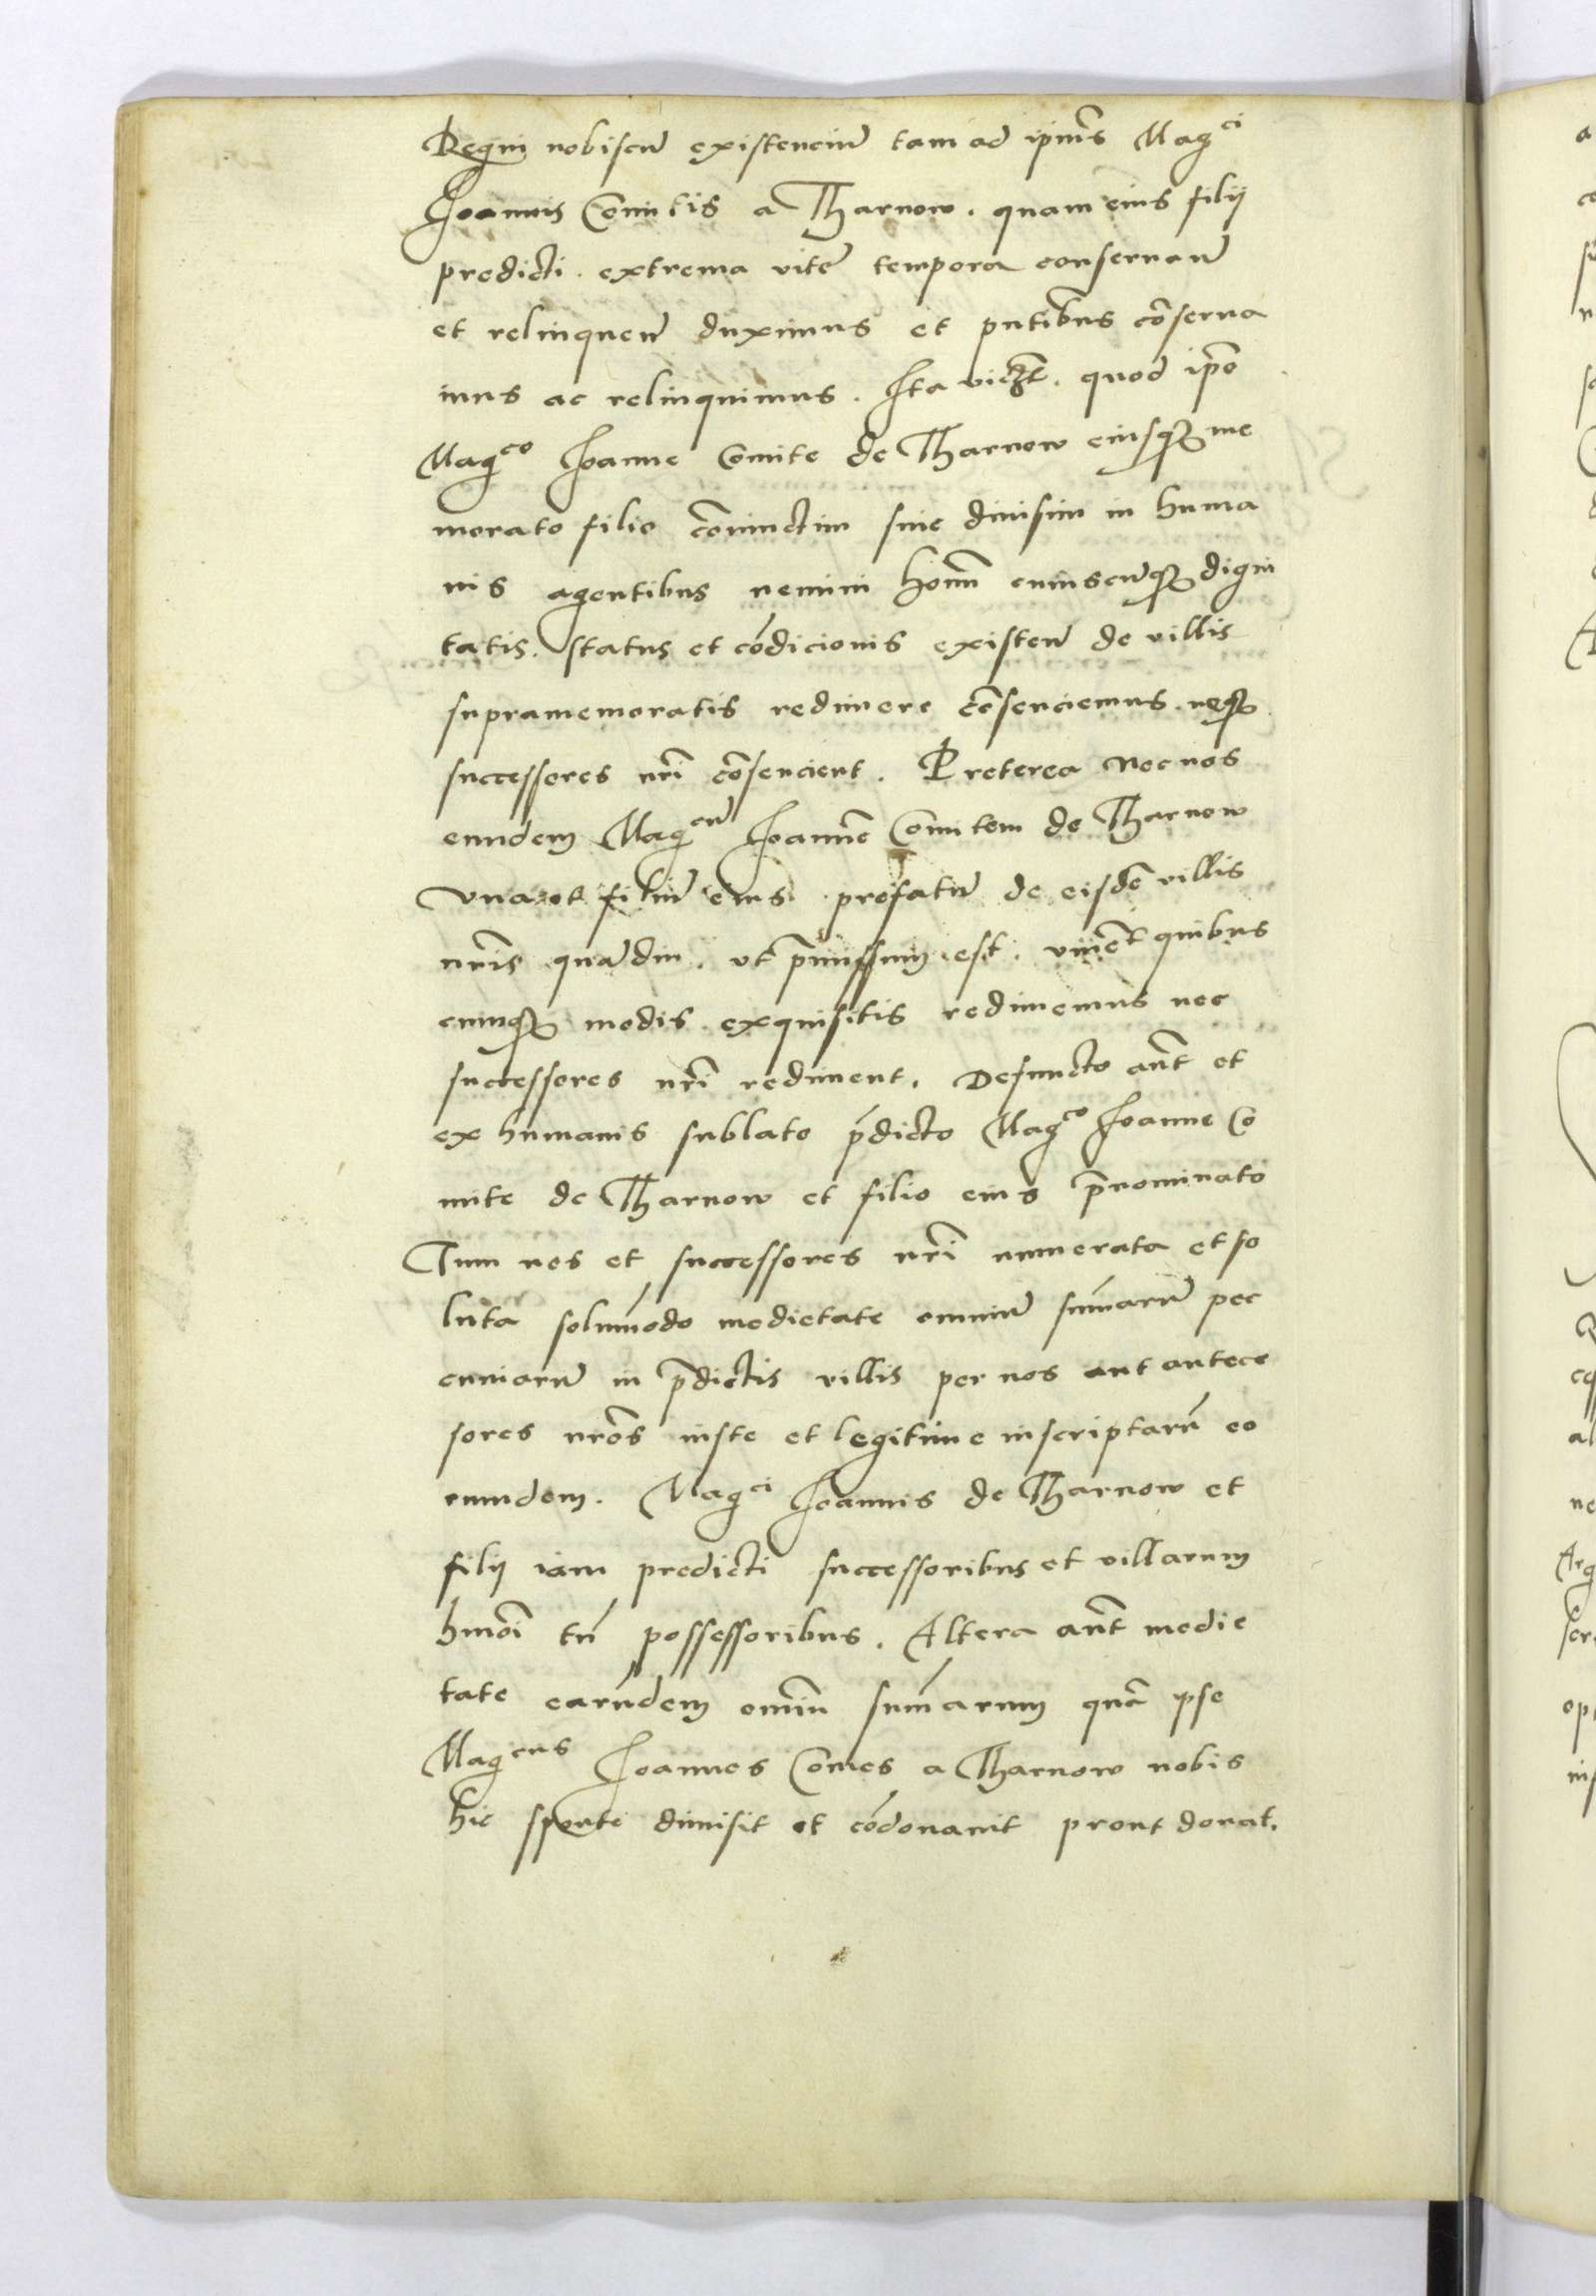 Regni nobiscū existenciū tam ad ipius Mag^ci
Joannis Comitis a Tharnow . quam eius filij
predicti . extrema vite tempora conseruanū
et relinquenū duximus et pntibus cōserua
mus ac relinquimus . Ita vidzt . quod ipō
Mag^co Joanne Comite de Tharnow eiusq3 me
morato filio cōiunctim siue diuisim in huma
nis agentibus nemini hoīnū cuiuscūq3 digni
tatis . status et cōdicionis existenū de villis
supramemoratis redimere cōsenciemus . neq3
successores nrī cōsencient . Preterea nec nos
eundem Mag^cū Joannē Comitem de Tharnow
vna et filiū eius . prefatū de eisdē villis
nrīs quādiu . vt p̄missum est . viuēt quibus
cumq3 modis exquisitis redimemus nec
successores nrī rediment . Defuncto aūt et
ex humanis sublato p̄dicto Mag^co Joanne Co
mite de Tharnow et filio eius p̄nominato
Tum nos et successores nrī numerata et so
luta solūmodo medietate omniū sūmarū pec
cuniarū in p̄dictis villis per nos aut antece
sores nrōs iuste et legitime inscriptarū eo
rumdem . Mag^ci Joannis de Tharnow et
filij iam predicti successoribus et villarum
hmōi tū possessoribus . Altera aūt medie
tate earūdem omīū sum̄arum quā ipse
Mag^cus Joannes Comes a Tharnow nobis
hic sponte dimisit et cōdonauit prout donat .